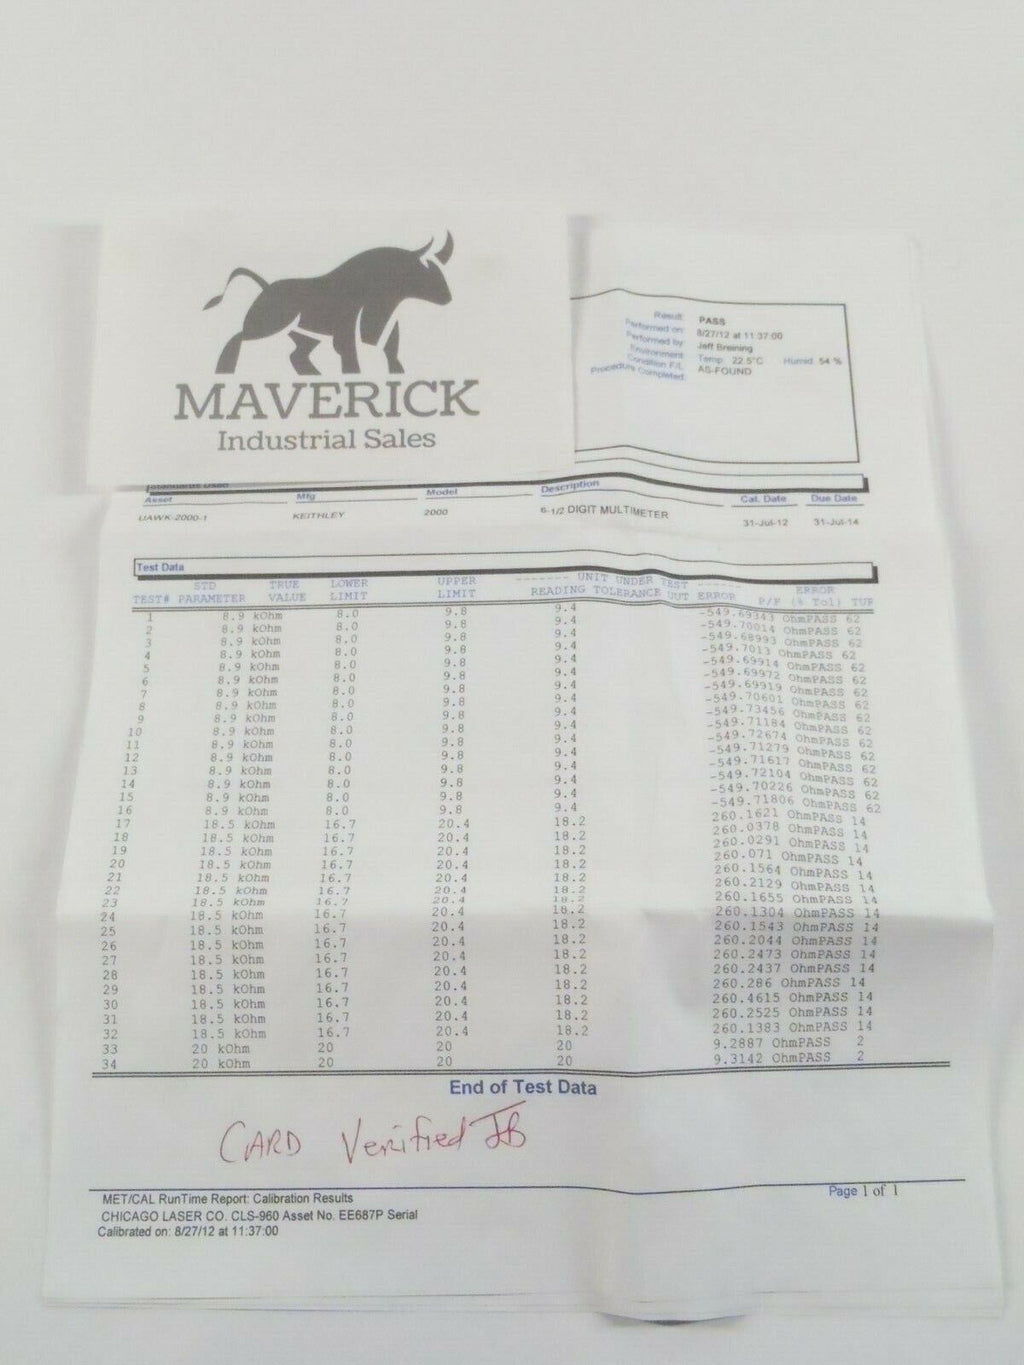 MAVERICK
Industrial Sales
Result: PASS
Performed on: 8/27/12 at 11:37:00
Performed by Jeff Breining
Environment Temp: 22.5°C Humid: 54 %
Condition F/L AS-FOUND
Procedure Completed:
Standards Used
Asset Mfg Model Description Cal. Date Due Date
UAWK-2000-1 KEITHLEY 2000 6-1/2 DIGIT MULTIMETER 31-Jul-12 31-Jul-14
Test Data
STD TRUE LOWER UPPER ------- UNIT UNDER TEST ------ ERROR
TEST# PARAMETER VALUE LIMIT LIMIT READING TOLERANCE UUT ERROR P/F (% Tol) TUR
1 8.9 kOhm 8.0 9.8 9.4 -549.69343 OhmPASS 62
2 8.9 kOhm 8.0 9.8 9.4 -549.70014 OhmPASS 62
3 8.9 kOhm 8.0 9.8 9.4 -549.68993 OhmPASS 62
4 8.9 kOhm 8.0 9.8 9.4 -549.7013 OhmPASS 62
5 8.9 kOhm 8.0 9.8 9.4 -549.69914 OhmPASS 62
6 8.9 kOhm 8.0 9.8 9.4 -549.69972 OhmPASS 62
7 8.9 kOhm 8.0 9.8 9.4 -549.69919 OhmPASS 62
8 8.9 kOhm 8.0 9.8 9.4 -549.70601 OhmPASS 62
9 8.9 kOhm 8.0 9.8 9.4 -549.73456 OhmPASS 62
10 8.9 kOhm 8.0 9.8 9.4 -549.71184 OhmPASS 62
11 8.9 kOhm 8.0 9.8 9.4 -549.72674 OhmPASS 62
12 8.9 kOhm 8.0 9.8 9.4 -549.71279 OhmPASS 62
13 8.9 kOhm 8.0 9.8 9.4 -549.71617 OhmPASS 62
14 8.9 kOhm 8.0 9.8 9.4 -549.72104 OhmPASS 62
15 8.9 kOhm 8.0 9.8 9.4 -549.70226 OhmPASS 62
16 8.9 kOhm 8.0 9.8 9.4 -549.71806 OhmPASS 62
17 18.5 kOhm 16.7 20.4 18.2 260.1621 OhmPASS 14
18 18.5 kOhm 16.7 20.4 18.2 260.0378 OhmPASS 14
19 18.5 kOhm 16.7 20.4 18.2 260.0291 OhmPASS 14
20 18.5 kOhm 16.7 20.4 18.2 260.071 OhmPASS 14
21 18.5 kOhm 16.7 20.4 18.2 260.1564 OhmPASS 14
22 18.5 kOhm 16.7 20.4 18.2 260.2129 OhmPASS 14
23 18.5 kOhm 16.7 20.4 18.2 260.1655 OhmPASS 14
24 18.5 kOhm 16.7 20.4 18.2 260.1304 OhmPASS 14
25 18.5 kOhm 16.7 20.4 18.2 260.1543 OhmPASS 14
26 18.5 kOhm 16.7 20.4 18.2 260.2044 OhmPASS 14
27 18.5 kOhm 16.7 20.4 18.2 260.2473 OhmPASS 14
28 18.5 kOhm 16.7 20.4 18.2 260.2437 OhmPASS 14
29 18.5 kOhm 16.7 20.4 18.2 260.286 OhmPASS 14
30 18.5 kOhm 16.7 20.4 18.2 260.4615 OhmPASS 14
31 18.5 kOhm 16.7 20.4 18.2 260.2525 OhmPASS 14
32 18.5 kOhm 16.7 20.4 18.2 260.1383 OhmPASS 14
33 20 kOhm 20 20 20 9.2887 OhmPASS 2
34 20 kOhm 20 20 20 9.3142 OhmPASS 2
End of Test Data
CARD Verified JB
MET/CAL RunTime Report: Calibration Results Page 1 of 1
CHICAGO LASER CO. CLS-960 Asset No. EE687P Serial
Calibrated on: 8/27/12 at 11:37:00